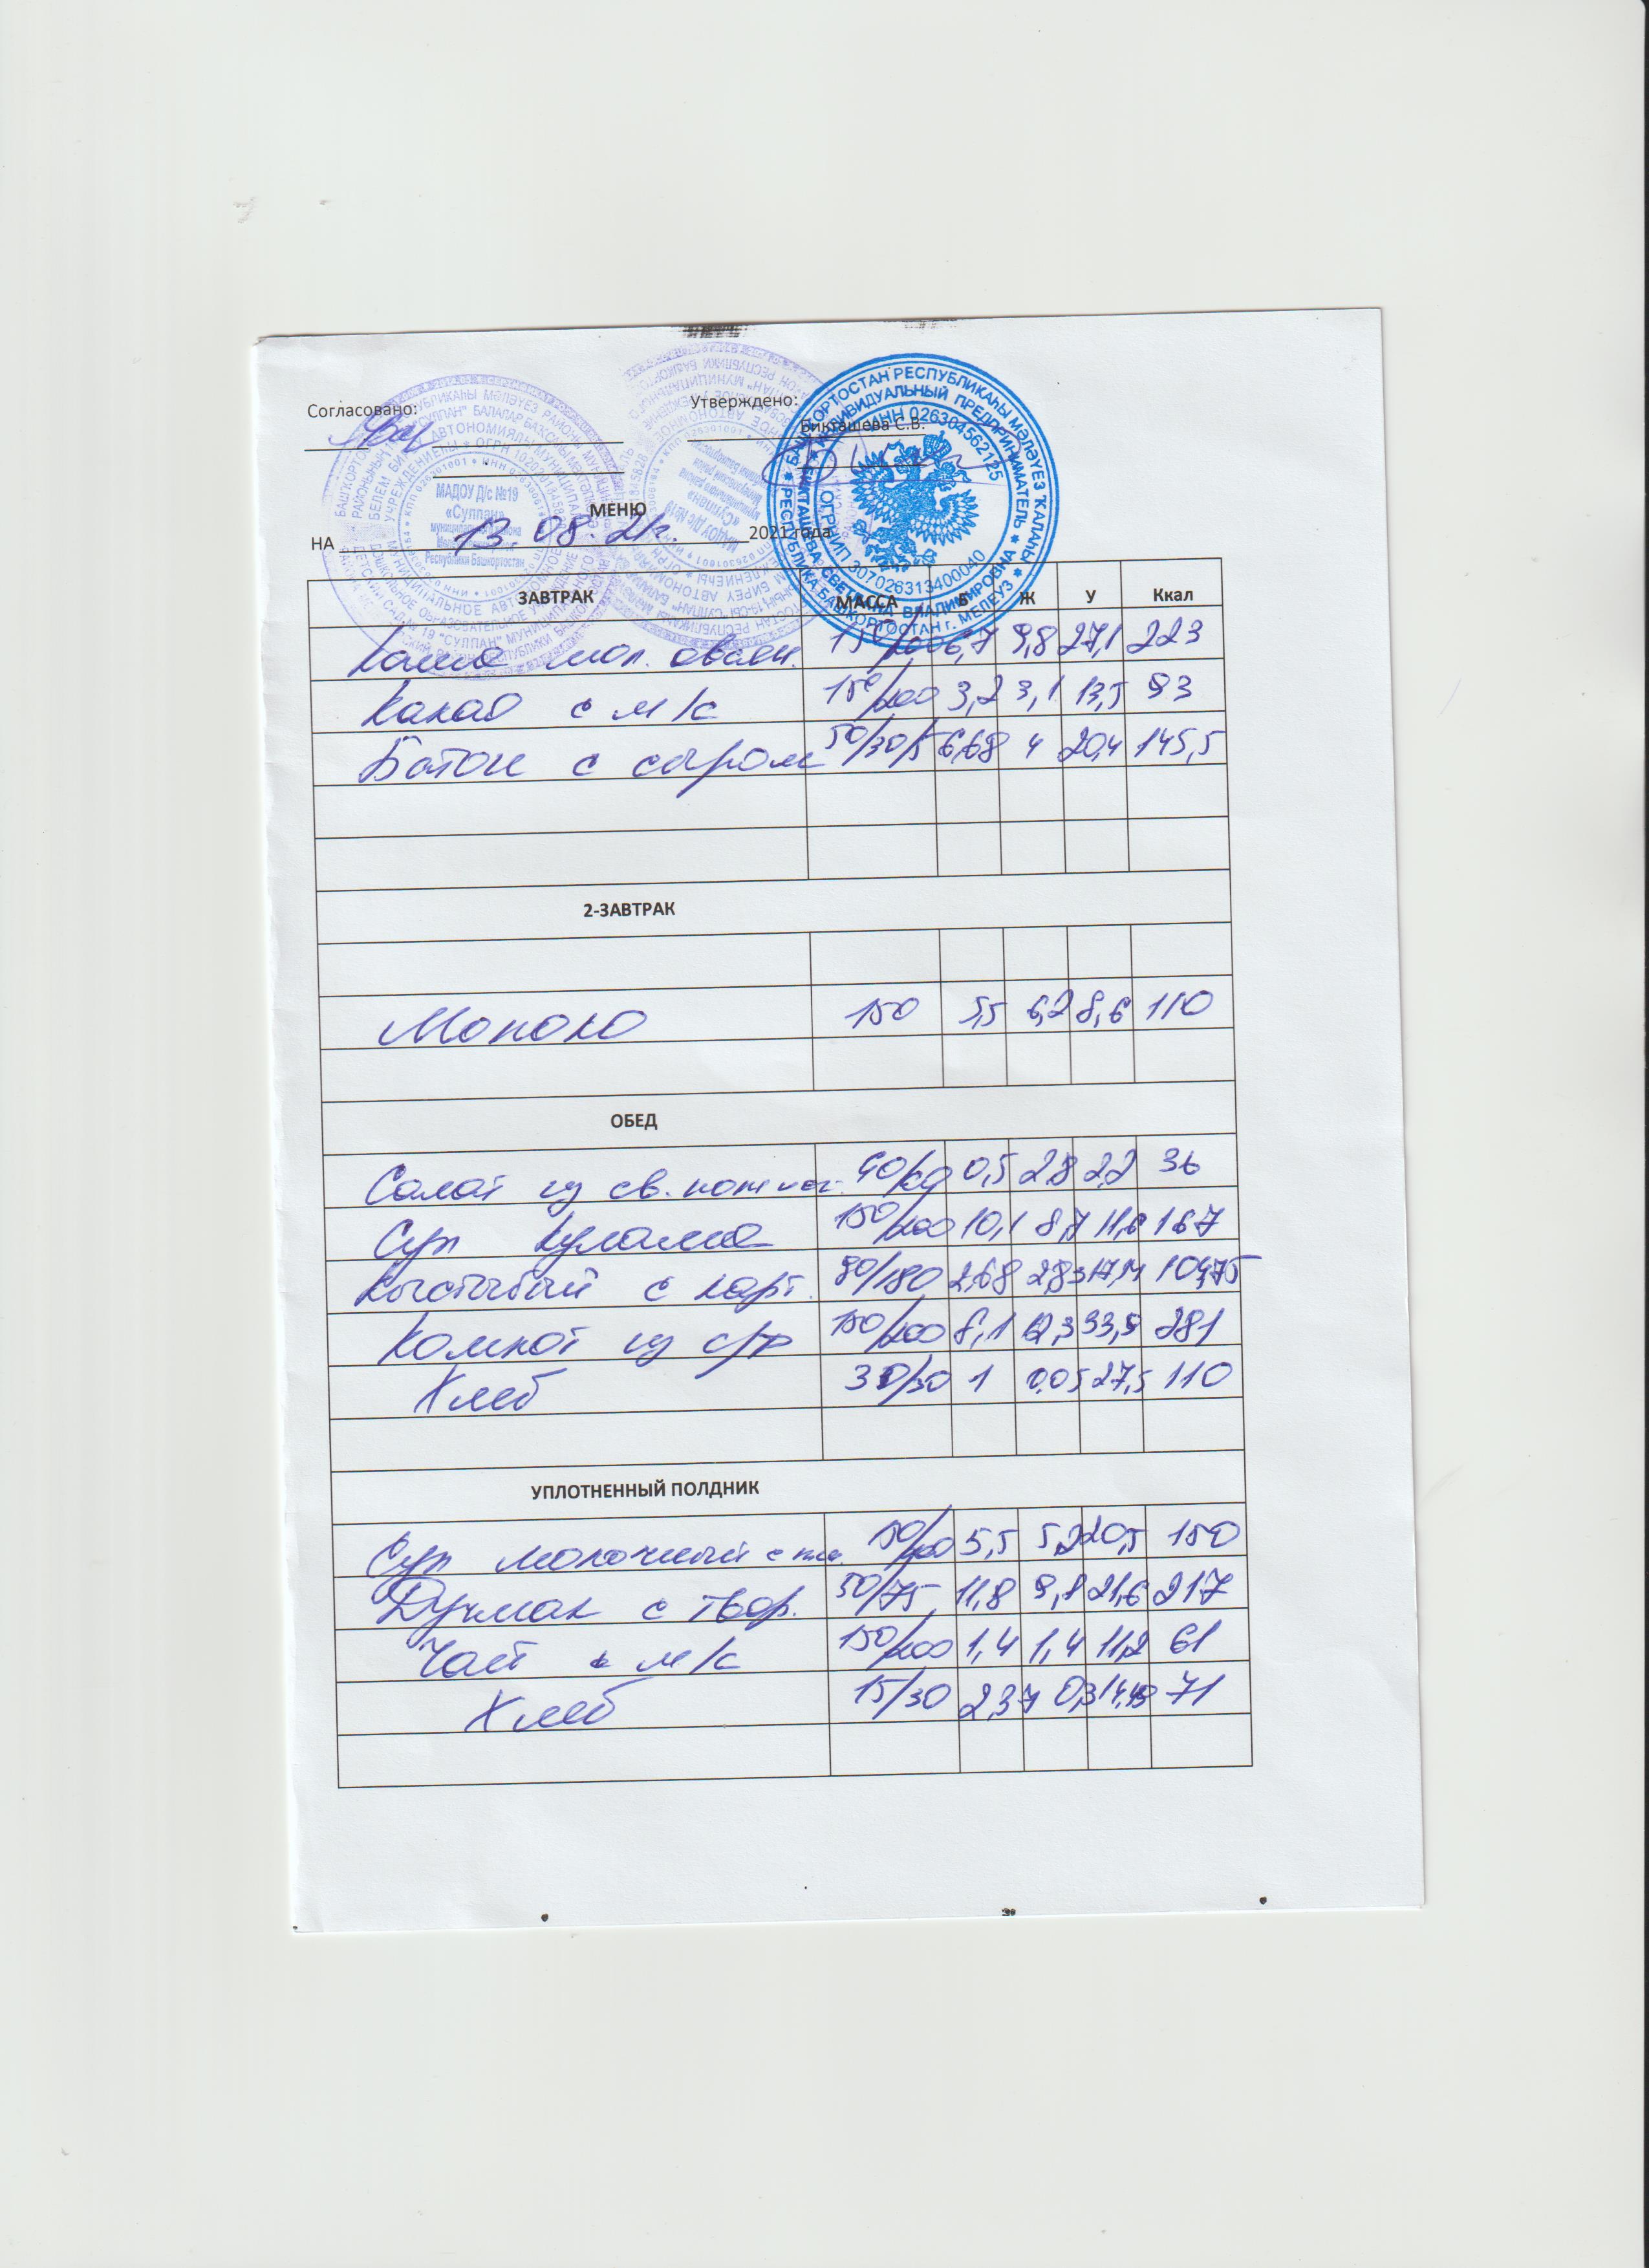 Согласовано:
Утверждено:
Бикташева С.В.
МЕНЮ
НА 13.08.21г. 2021 года
ЗАВТРАК МАССА Б Ж У Ккал
Каша мол. овсян. 150/200 6,7 9,8 27,1 223
Какао с м/с 150/200 3,2 3,1 13,5 93
Батон с сыром 50/30/5 6,68 4 20,4 145,5
2-ЗАВТРАК
Молоко 150 5,5 6,2 8,6 110
ОБЕД
Салат из св. 40/60 0,5 2,8 2,2 36
Суп Кулама 150/200 10,1 8,7 11,6 167
Кыстыбый с карт. 80/180 2,68 2,83 17,14
Компот из с/ф 150/200 8,1 12,3 33,5 281
Хлеб 30/30 1 0,05 27,5 110
УПЛОТНЕННЫЙ ПОЛДНИК
Суп молочный с 150/200 5,5 5,2 20,5 150
Дучмак с твор. 50/75 11,8 9,8 21,6 217
Чай с м/с 150/200 1,4 1,4 11,2 61
Хлеб 15/30 2,37 0,3 14,49 71
МАДОУ Д/с №19
«Сулпан»
муниципального района
Республики Башкортостан
БАШКОРТОСТАН РЕСПУБЛИКАҺЫ МӘЛӘҮЕЗ ҠАЛАҺЫ
ИНДИВИДУАЛЬНЫЙ ПРЕДПРИНИМАТЕЛЬ
БИКТАШЕВА СВЕТЛАНА ВЛАДИМИРОВНА
РЕСПУБЛИКА БАШКОРТОСТАН г. МЕЛЕУЗ
ИНН 026304562125
ОГРНИП 307026313400040